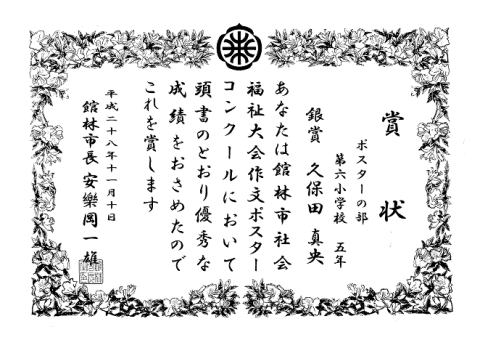 賞状
ポスターの部
第六小学校 五年
銀賞 久保田 真央
あなたは館林市社会
福祉大会作文ポスター
コンクールにおいて
頭書のとおり優秀な
成績をおさめたので
これを賞します
平成二十八年十一月十日
館林市長 安樂岡一雄